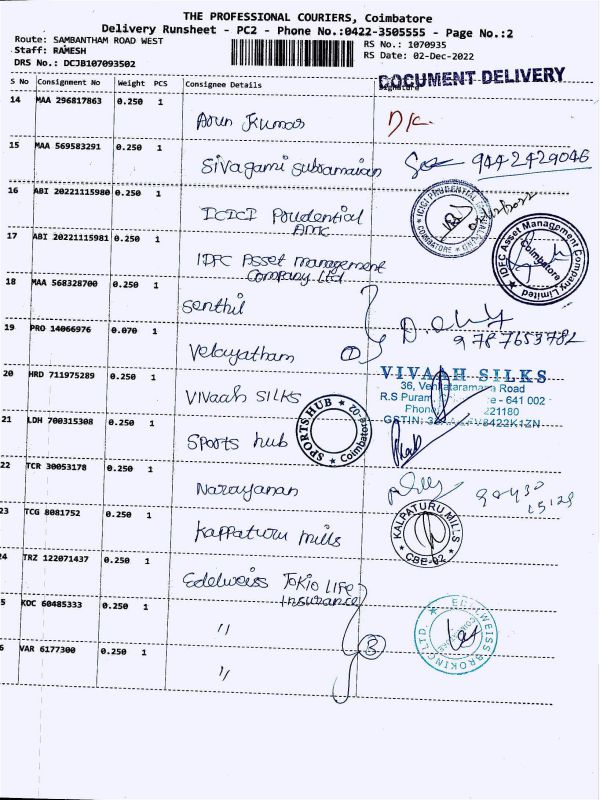 THE PROFESSIONAL COURIERS, Coimbatore
Delivery Runsheet - PC2 - Phone No.:0422-3505555 - Page No.:2
Route: SAMBANTHAM ROAD WEST
Staff: RAMESH
DRS No.: DCJB107093502
RS No.: 1070935
RS Date: 02-Dec-2022
DOCUMENT DELIVERY
S No Consignment No Weight PCS Consignee Details Signature
14 MAA 296817863 0.250 1
Arun Kumar
15 MAA 569583291 0.250 1
Sivagami Subramaian 9442429046
16 ABI 20221115980 0.250 1
ICICI Prudential
AMC
ICICI PRUDENTIAL
COIMBATORE
02/12/2022
17 ABI 20221115981 0.250 1
IDFC Asset management
Company Ltd
IDFC Asset Management Company Limited
Coimbatore
18 MAA 568328700 0.250 1
Senthil
19 PRO 14066976 0.070 1
Velayatham 2
9787653782
20 HRD 711975289 0.250 1
Vivaah SILKS
VIVAAH SILKS
36, Venkataramana Road
R.S Puram, e - 641 002
Phone 221180
GSTIN: 8422K1ZN
21 LDH 700315308 0.250 1
Sports hub
SPORTS HUB
Coimbatore-02
22 TCR 30053178 0.250 1
Narayanan
23 TCG 8081752 0.250 1
Kappaturu mills
KALPATURU MILLS
CBE-02
24 TRZ 122071437 0.250 1
Edelweiss Tokio LIFE
Insurance
5 KOC 60485333 0.250 1
"
EDELWEISS BROKING LTD.
6 VAR 6177300 0.250 1
" 3